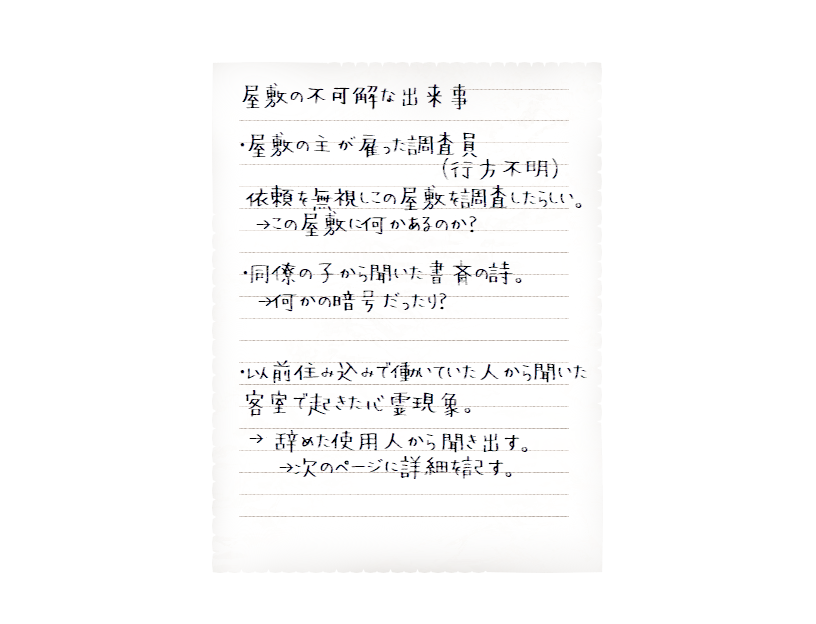 屋敷の不可解な出来事
・屋敷の主が雇った調査員
(行方不明)
依頼を無視しこの屋敷を調査したらしい。
→この屋敷に何かあるのか?
・同僚の子から聞いた書斎の詩。
→何かの暗号だったり?
・以前住み込みで働いていた人から聞いた
客室で起きた心霊現象。
→ 辞めた使用人から聞き出す。
→次のページに詳細を記す。